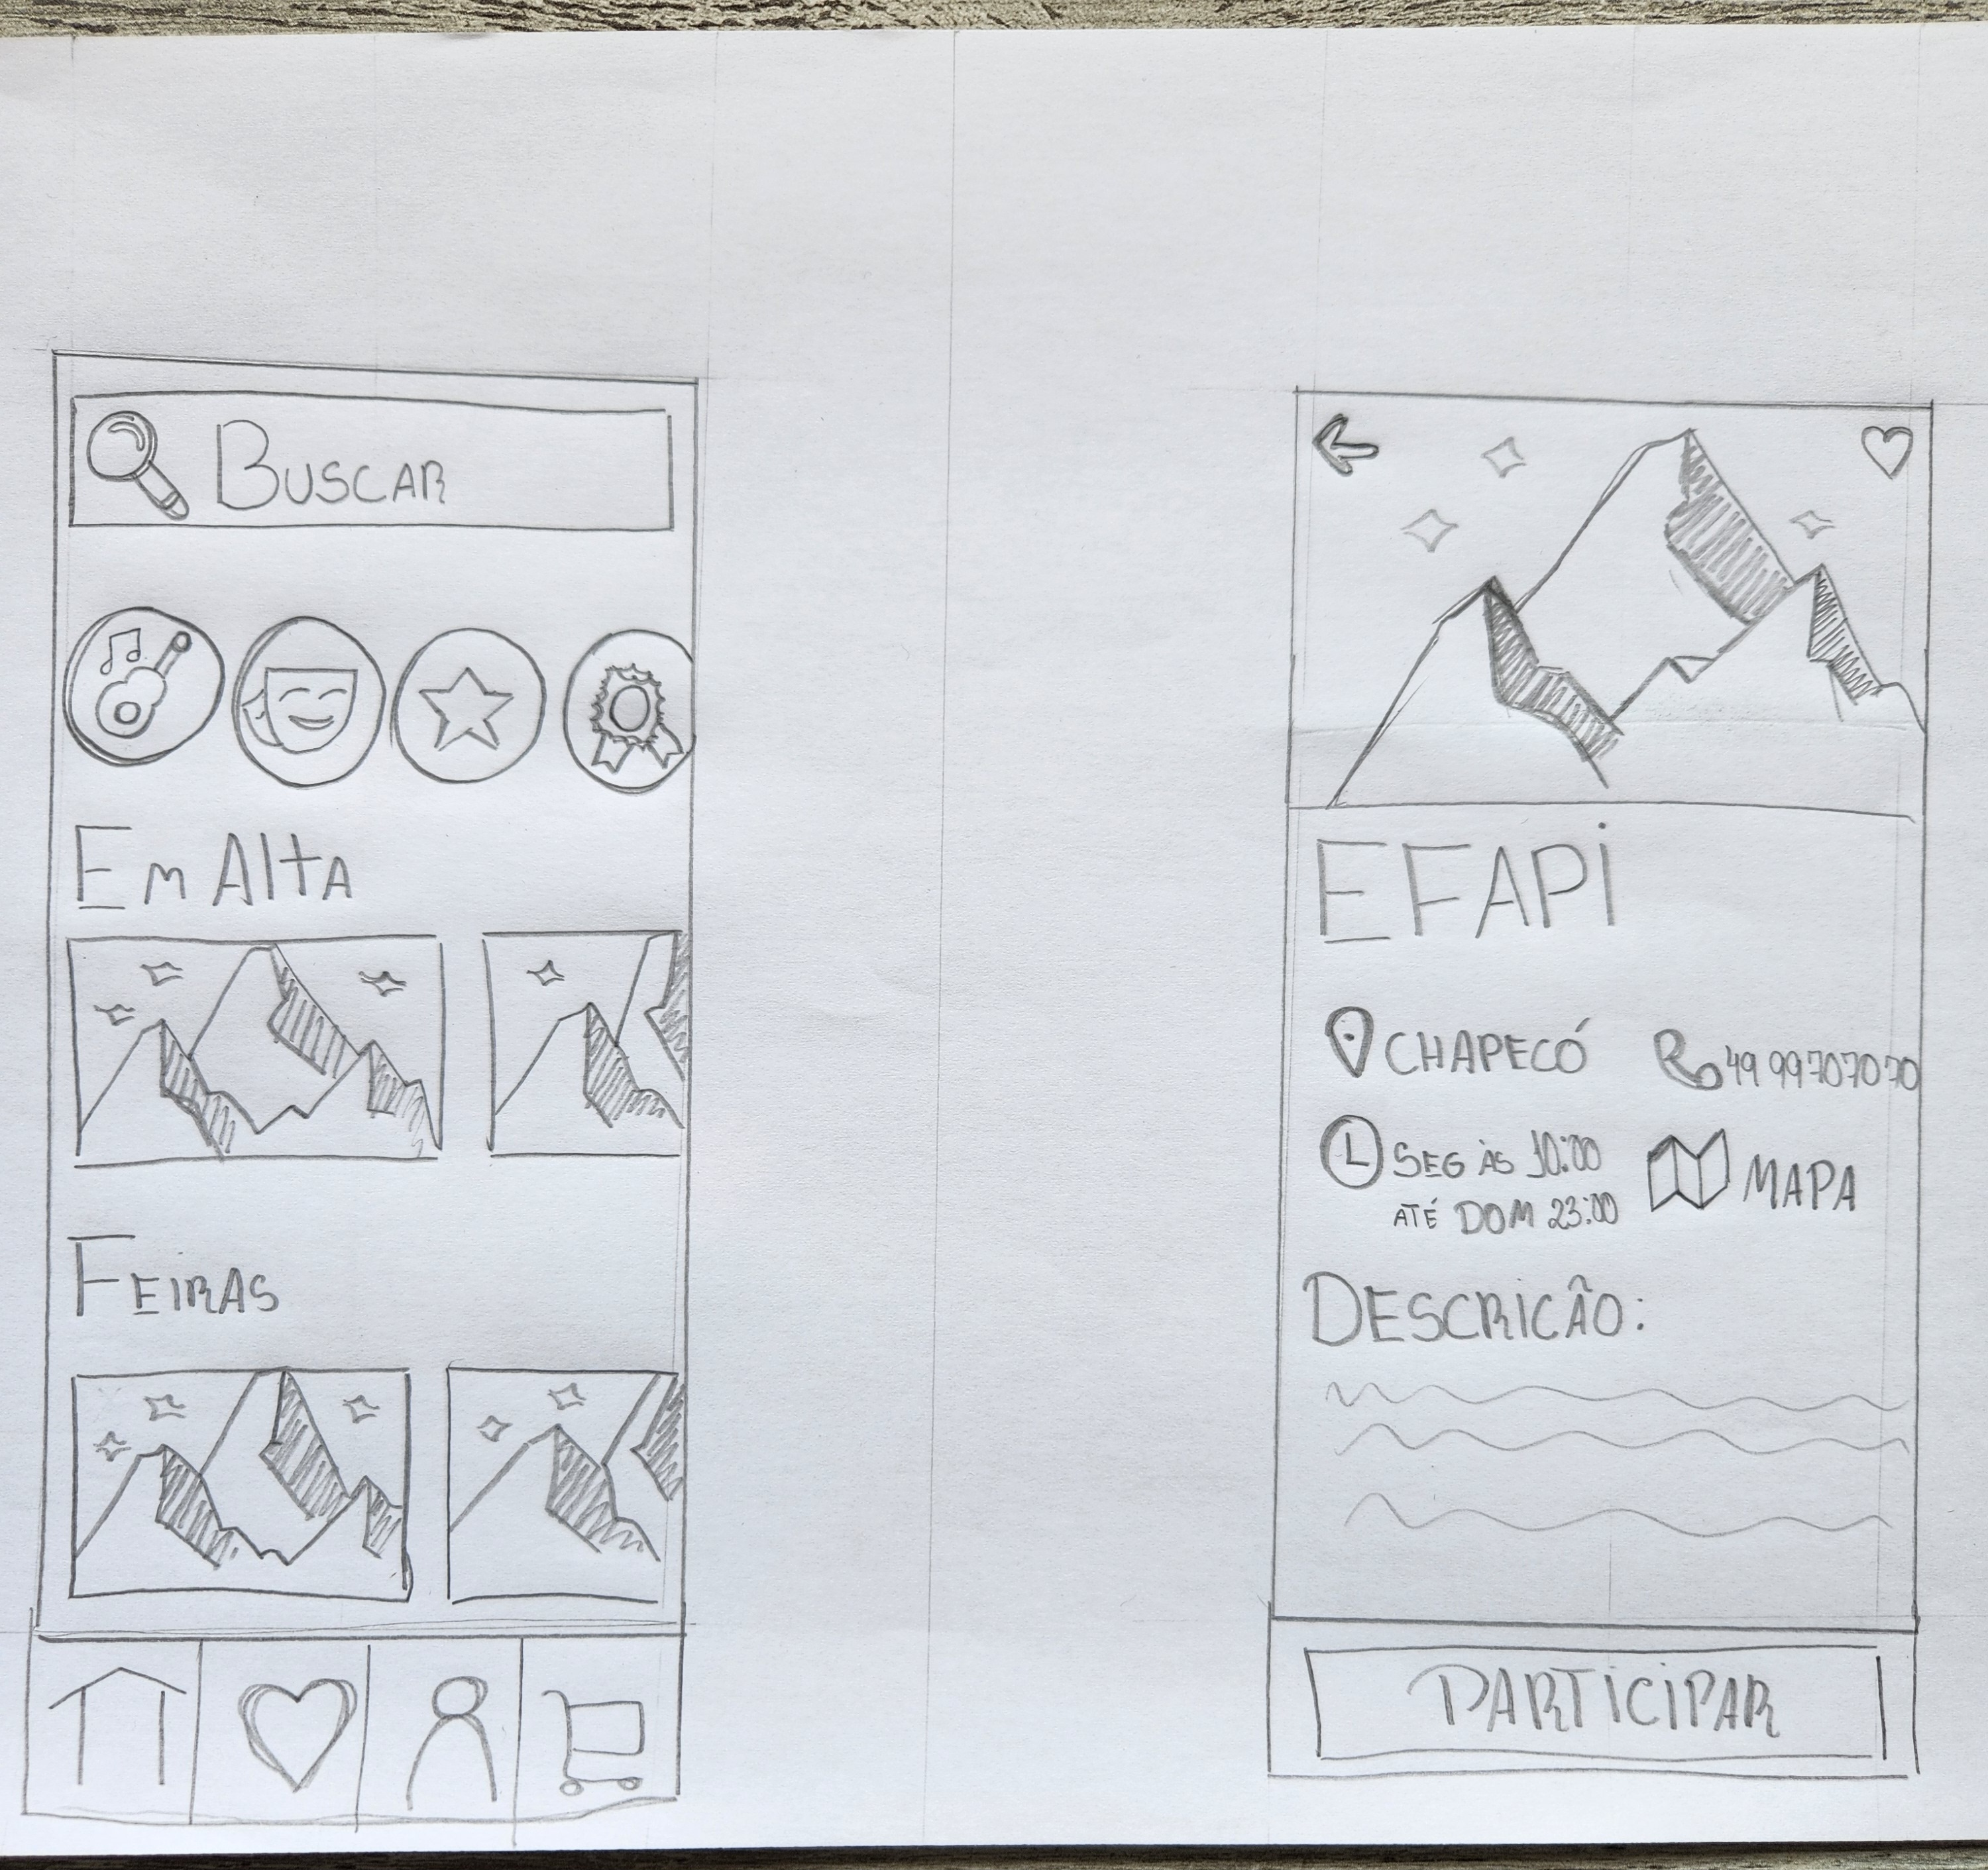 BUSCAR
Em Alta
FEIRAS
EFAPi
CHAPECÓ
49 99707070
SEG ÀS 10:00
ATÉ DOM 23:00
MAPA
DESCRiCÃO:
PARTiCiPAR